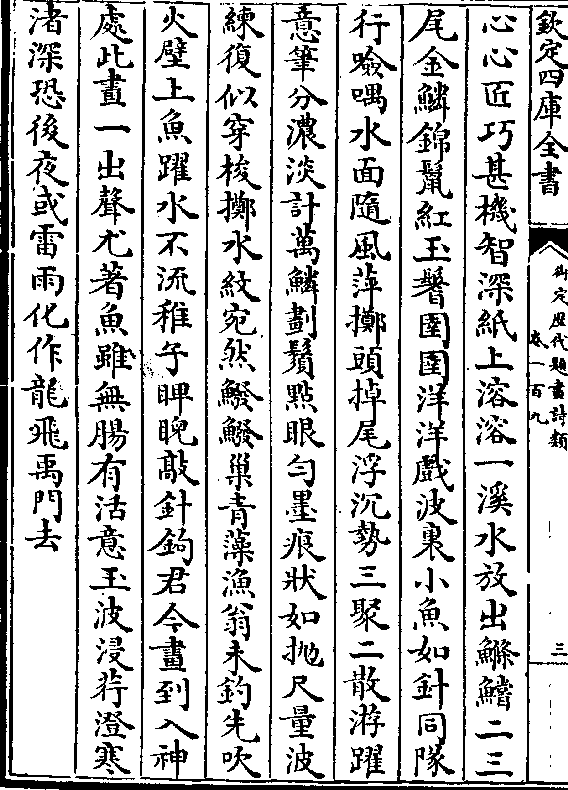 欽定四庫全書
御定歴代題畫詩類
卷一百九
三
心心匠巧甚機智深紙上溶溶一溪水放出鰷鱨二三
尾金鱗錦鬣紅玉鬐圉圉洋洋戲波裏小魚如針同隊
行噞喁水面隨風萍擲頭掉尾浮沉勢三聚二散游躍
意筆分濃淡計萬鱗劃鬚㸃眼匀墨痕狀如抛尺量波
練復似穿梭擲水紋宛然鱍鱍巢青藻漁翁未釣先吹
火壁上魚躍水不流稚子睥睨敲針鉤君今畫到入神
處此畫一出聲尤著魚雖無腸有活意玉波浸荇澄寒
渚深恐後夜或雷雨化作龍飛禹門去